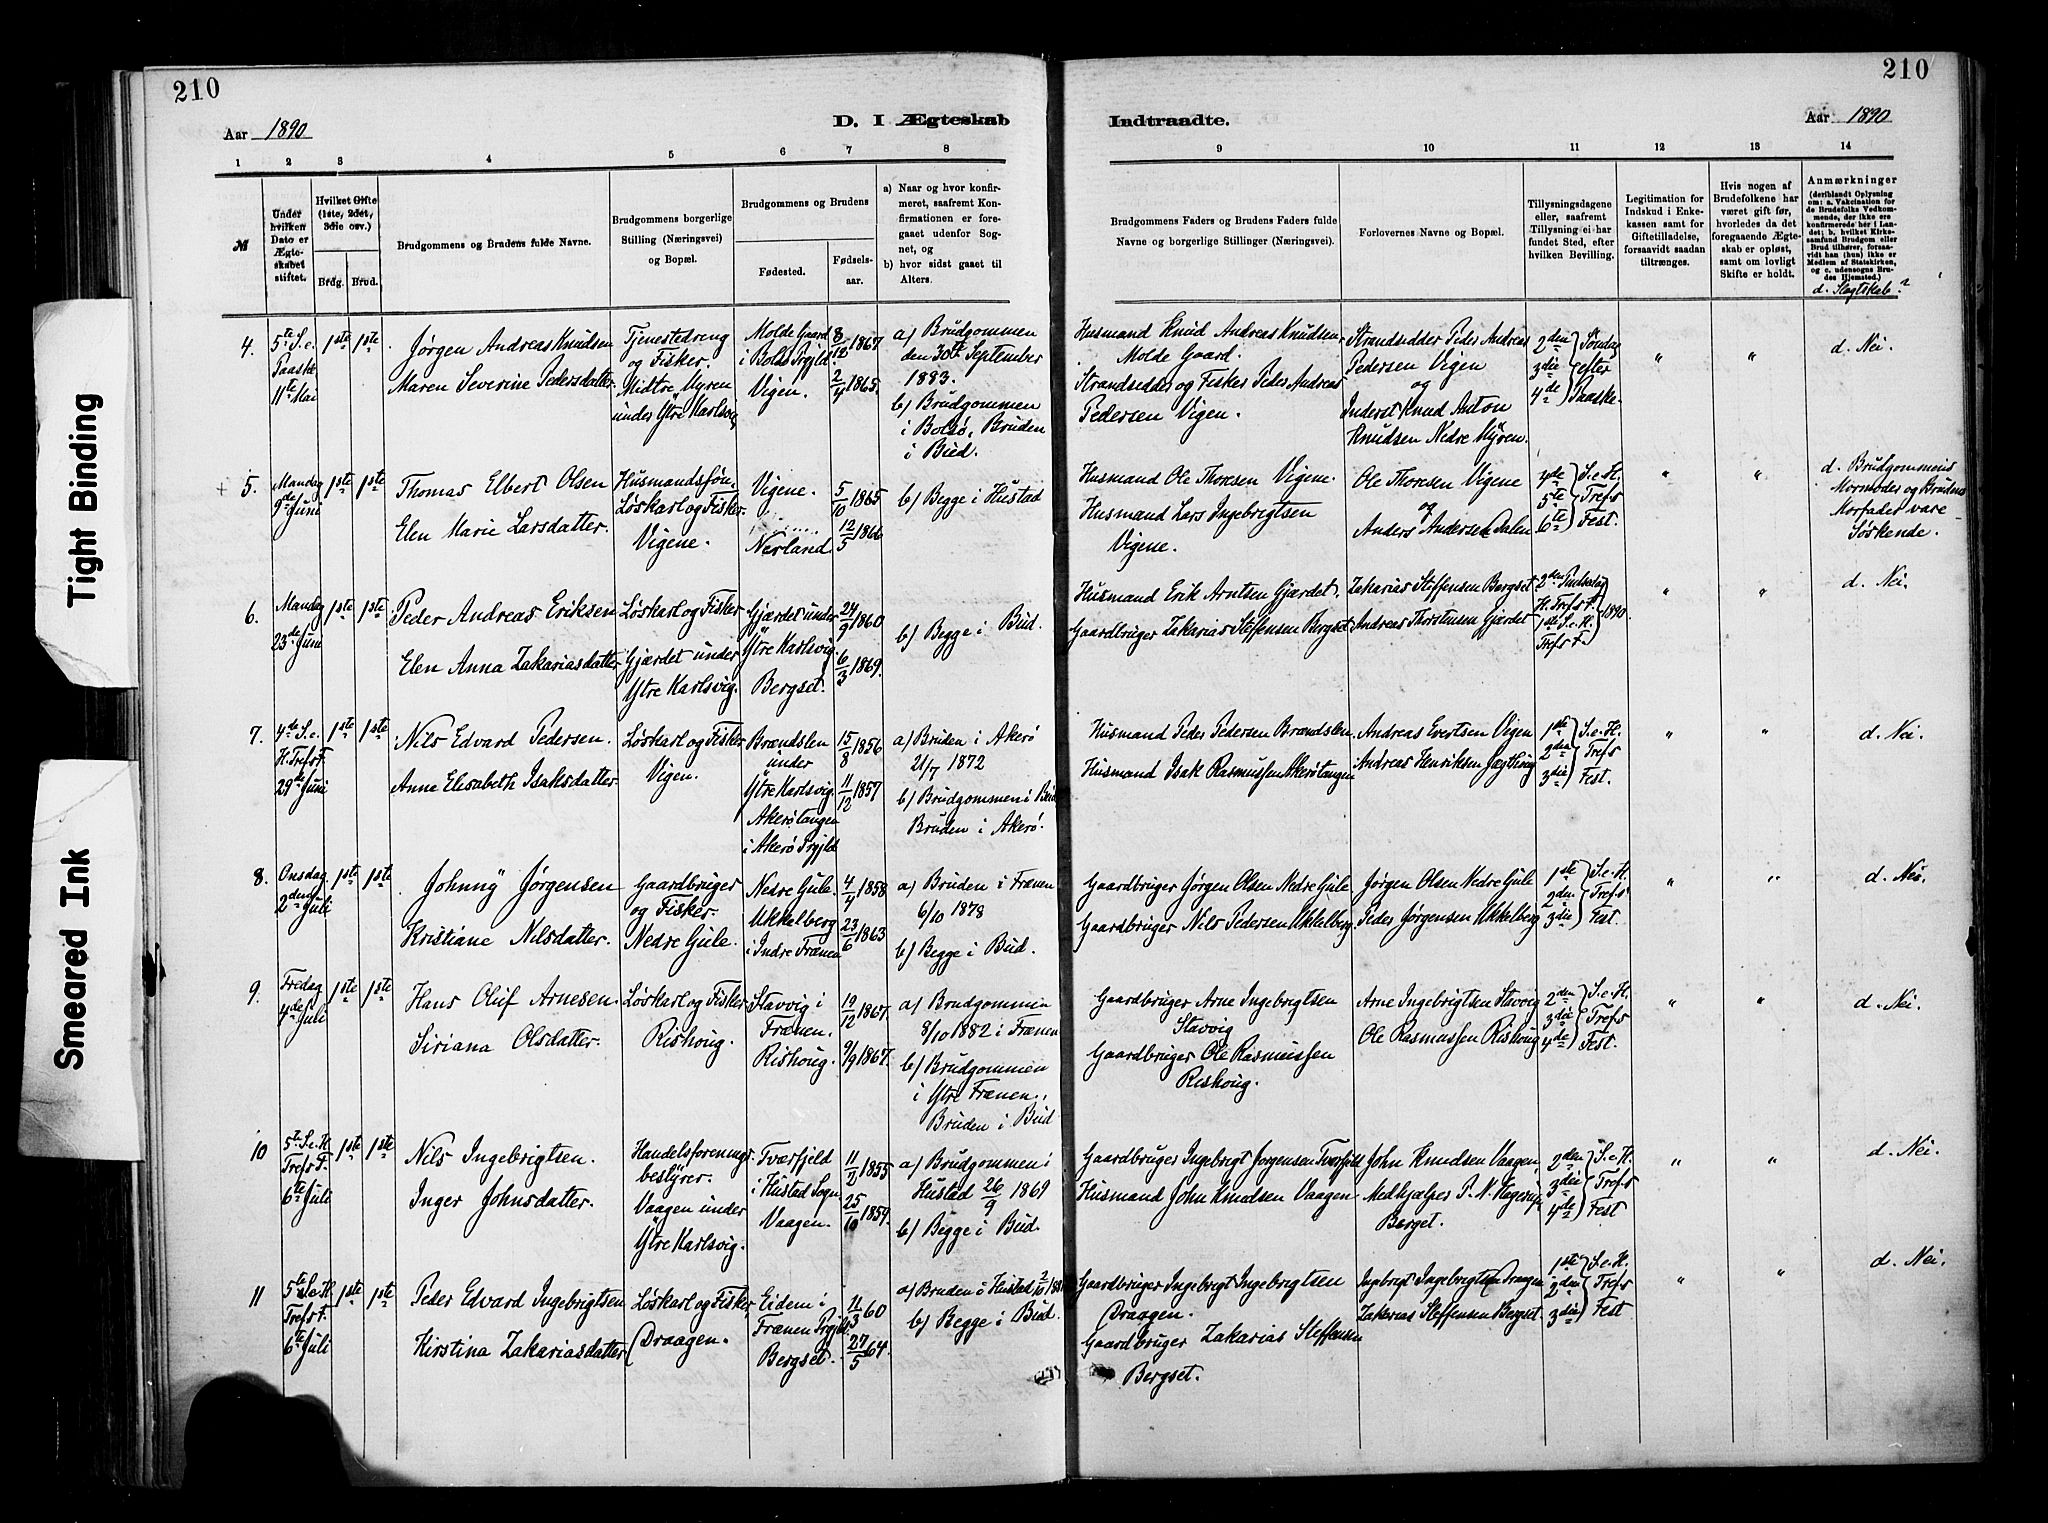 210
210
Aar 1890
D. I Ægteskab
Indtraadte.
Aar 1890
1 2 3 4 5 6 7 8
9 10 11 12 13 14
№
Under hvilken Dato er Ægteskabet stiftet.
Hvilket Gifte (1ste, 2det, 3die osv.)
Brdg. Brud.
Brudgommens og Brudens fulde Navne.
Brudgommens borgerlige Stilling (Næringsvei) og Bopæl.
Brudgommens og Brudens
Fødested.
Fødselsaar.
a) Naar og hvor konfirmeret, saafremt Konfirmationen er foregaaet udenfor Sognet, og
b) hvor sidst gaaet til Alters.
Brudgommens Faders og Brudens Faders fulde Navne og borgerlige Stillinger (Næringsvei).
Forlovernes Navne og Bopæl.
Tillysningsdagene eller, saafremt Tillysning ei har fundet Sted, efter hvilken Bevilling.
Legitimation for Indskud i Enkekassen samt for Giftetilladelse, forsaavidt saadan tiltrænges.
Hvis nogen af Brudefolkene har været gift før, hvorledes da det foregaaende Ægteskab er opløst, samt om lovligt Skifte er holdt.
Anmærkninger
(deriblandt Oplysning om: a. Vakcination for de Brudefolks Vedkommende, der ikke ere konfirmerede her i Landet; b. hvilket Kirkesamfund Brudgom eller Brud tilhører, forsaavidt han (hun) ikke er Medlem af Statskirken, og c. udensogns Brudes Hjemsted.)
d. Slægtskab?
4.
5te S. e. Paaske 11te Mai
1ste 1ste
Jørgen Andreas Knudsen
Maren Severine Pedersdatter.
Tjenestedreng og Fisker. Midtre Myren under Ytre Karlsvig
Molde Gaard i Bolsø Prgjld
Vigen.
8/12 1867
2/4 1865.
a) Brudgommen den 30te September 1883.
b) Brudgommen i Bolsø, Bruden i Bud.
Husmand Knud Andreas Knudsen Molde Gaard.
Strandsidder og Fisker Peder Andreas Pedersen Vigen.
Strandsidder Peder Andreas Pedersen Vigen
og
Inderst Knud Anton Knudsen Nedre Myren.
2den 3die 4de Søndag efter Paaske.
" "
d. Nei.
+ 5.
Mandag 9de Juni
1ste 1ste
Thomas Elbert Olsen
Elen Marie Larsdatter.
Husmandssøn. Løskarl og Fisker. Vigene.
Vigene.
Nerland.
5/10 1865
12/5 1866
b) Begge i Hustad
Husmand Ole Thoresen Vigene.
Husmand Lars Ingebrigtsen Vigene.
Ole Thoresen Vigene
og
Anders Andersen Dalen
4de 5te 6te S. e. H. Trefs Fest.
" "
d. Brudgommens Mormoder og Brudens Morfader vare Søskende.
6.
Mandag 23de Juni
1ste 1ste
Peder Andreas Eriksen
Elen Anna Zakariasdatter
Løskarl og Fisker Gjærdet under Ytre Karlsvig.
Gjærdet under Ytre Karlsvig.
Bergset.
24/9 1860
6/3 1869.
b) Begge i Bud.
Husmand Erik Arntsen Gjærdet.
Gaardbruger Zakarias Steffensen Bergset
Zakarias Steffensen Bergset
Andreas Thorstensen Gjærdet
2den Pinsedag H. Trefs F. 1ste S. e. H. Trefs F. 1890.
" "
d. Nei.
7.
4de S. e. H. Trefs F. 29de Juni
1ste 1ste
Nils Edvard Pedersen.
Anne Elisabeth Isaksdatter.
Løskarl og Fisker Vigen.
Brændslen under Ytre Karlsvig.
Akerøtangen i Akerø Prgjld
15/8 1856
11/12 1857
a) Bruden i Akerø 21/7 1872
b) Brudgommen i Bud Bruden i Akerø.
Husmand Peder Pedersen Brændslen.
Husmand Isak Rasmussen Akerøtangen
Andreas Evertsen Vigen
Andreas Henriksen Jægtvig
1ste 2den 3die S. e. H. Trefs Fest.
" "
d. Nei.
8.
Onsdag 2den Juli
1ste 1ste
Johnny Jørgensen
Kristiane Nilsdatter.
Gaardbruger og Fisker. Nedre Gule.
Nedre Gule.
Ukkelberg i Indre Frænen
4/4 1858
23/6 1863
a) Bruden i Frænen 6/10 1878
b) Begge i Bud.
Gaardbruger Jørgen Olsen Nedre Gule
Gaardbruger Nils Pedersen Ukkelberg
Jørgen Olsen Nedre Gule
Peder Jørgensen Ukkelberg
1ste 2den 3die S. e. H. Trefs Fest.
" "
d. Nei.
9.
Fredag 4de Juli
1ste 1ste
Hans Oluf Arnesen.
Siriana Olsdatter.
Løskarl og Fisker Rishoug.
Stavvig i Frænen.
Rishoug.
19/12 1867.
9/9 1867.
a) Brudgommen 8/10 1882 i Frænen
b) Brudgommen i Ytre Frænen. Bruden i Bud
Gaardbruger Arne Ingebrigtsen Stavvig
Gaardbruger Ole Rasmussen Rishoug.
Arne Ingebrigtsen Stavvig
Ole Rasmussen Rishoug
2den 3die 4de S. e. H. Trefs Fest.
" "
d. Nei.
10
5te S. e. H. Trefs F. 6te Juli
1ste 1ste
Nils Ingebrigtsen.
Inger Johnsdatter.
Handelsforeningsbestyrer. Vaagen under Ytre Karlsvig.
Tværfjeld i Hustad Sogn
Vaagen.
11/2 1855
25/10 1859.
a) Brudgommen i Hustad 26/9 1869
b) Begge i Bud.
Gaardbruger Ingebrigt Jørgensen Tværfjeld
Husmand John Knudsen Vaagen
John Knudsen Vaagen,
Medhjælper P. N. Hagerup Berget.
2den 3die 4de S. e. H. Trefs Fest
" "
d. Nei.
11
5te S. e. H. Trefs F. 6te Juli
1ste 1ste
Peder Edvard Ingebrigtsen
Kirstina Zakariasdatter
Løskarl og Fisker, Draagen.
Eidem i Frænen Prgjld.
Bergset.
11/3 60
27/5 64.
a) Bruden i Hustad 2/10
b) Begge i Bud.
Gaardbruger Ingebrigt Ingebrigtsen Draagen.
Gaardbruger Zakarias Steffensen Bergset.
Ingebrigt Ingebrigtsen Draagen
Zakarias Steffensen Bergset.
1ste 2den 3die S. e. H. Trefs Fest
" "
d. Nei.
Tight Binding
Smeared Ink